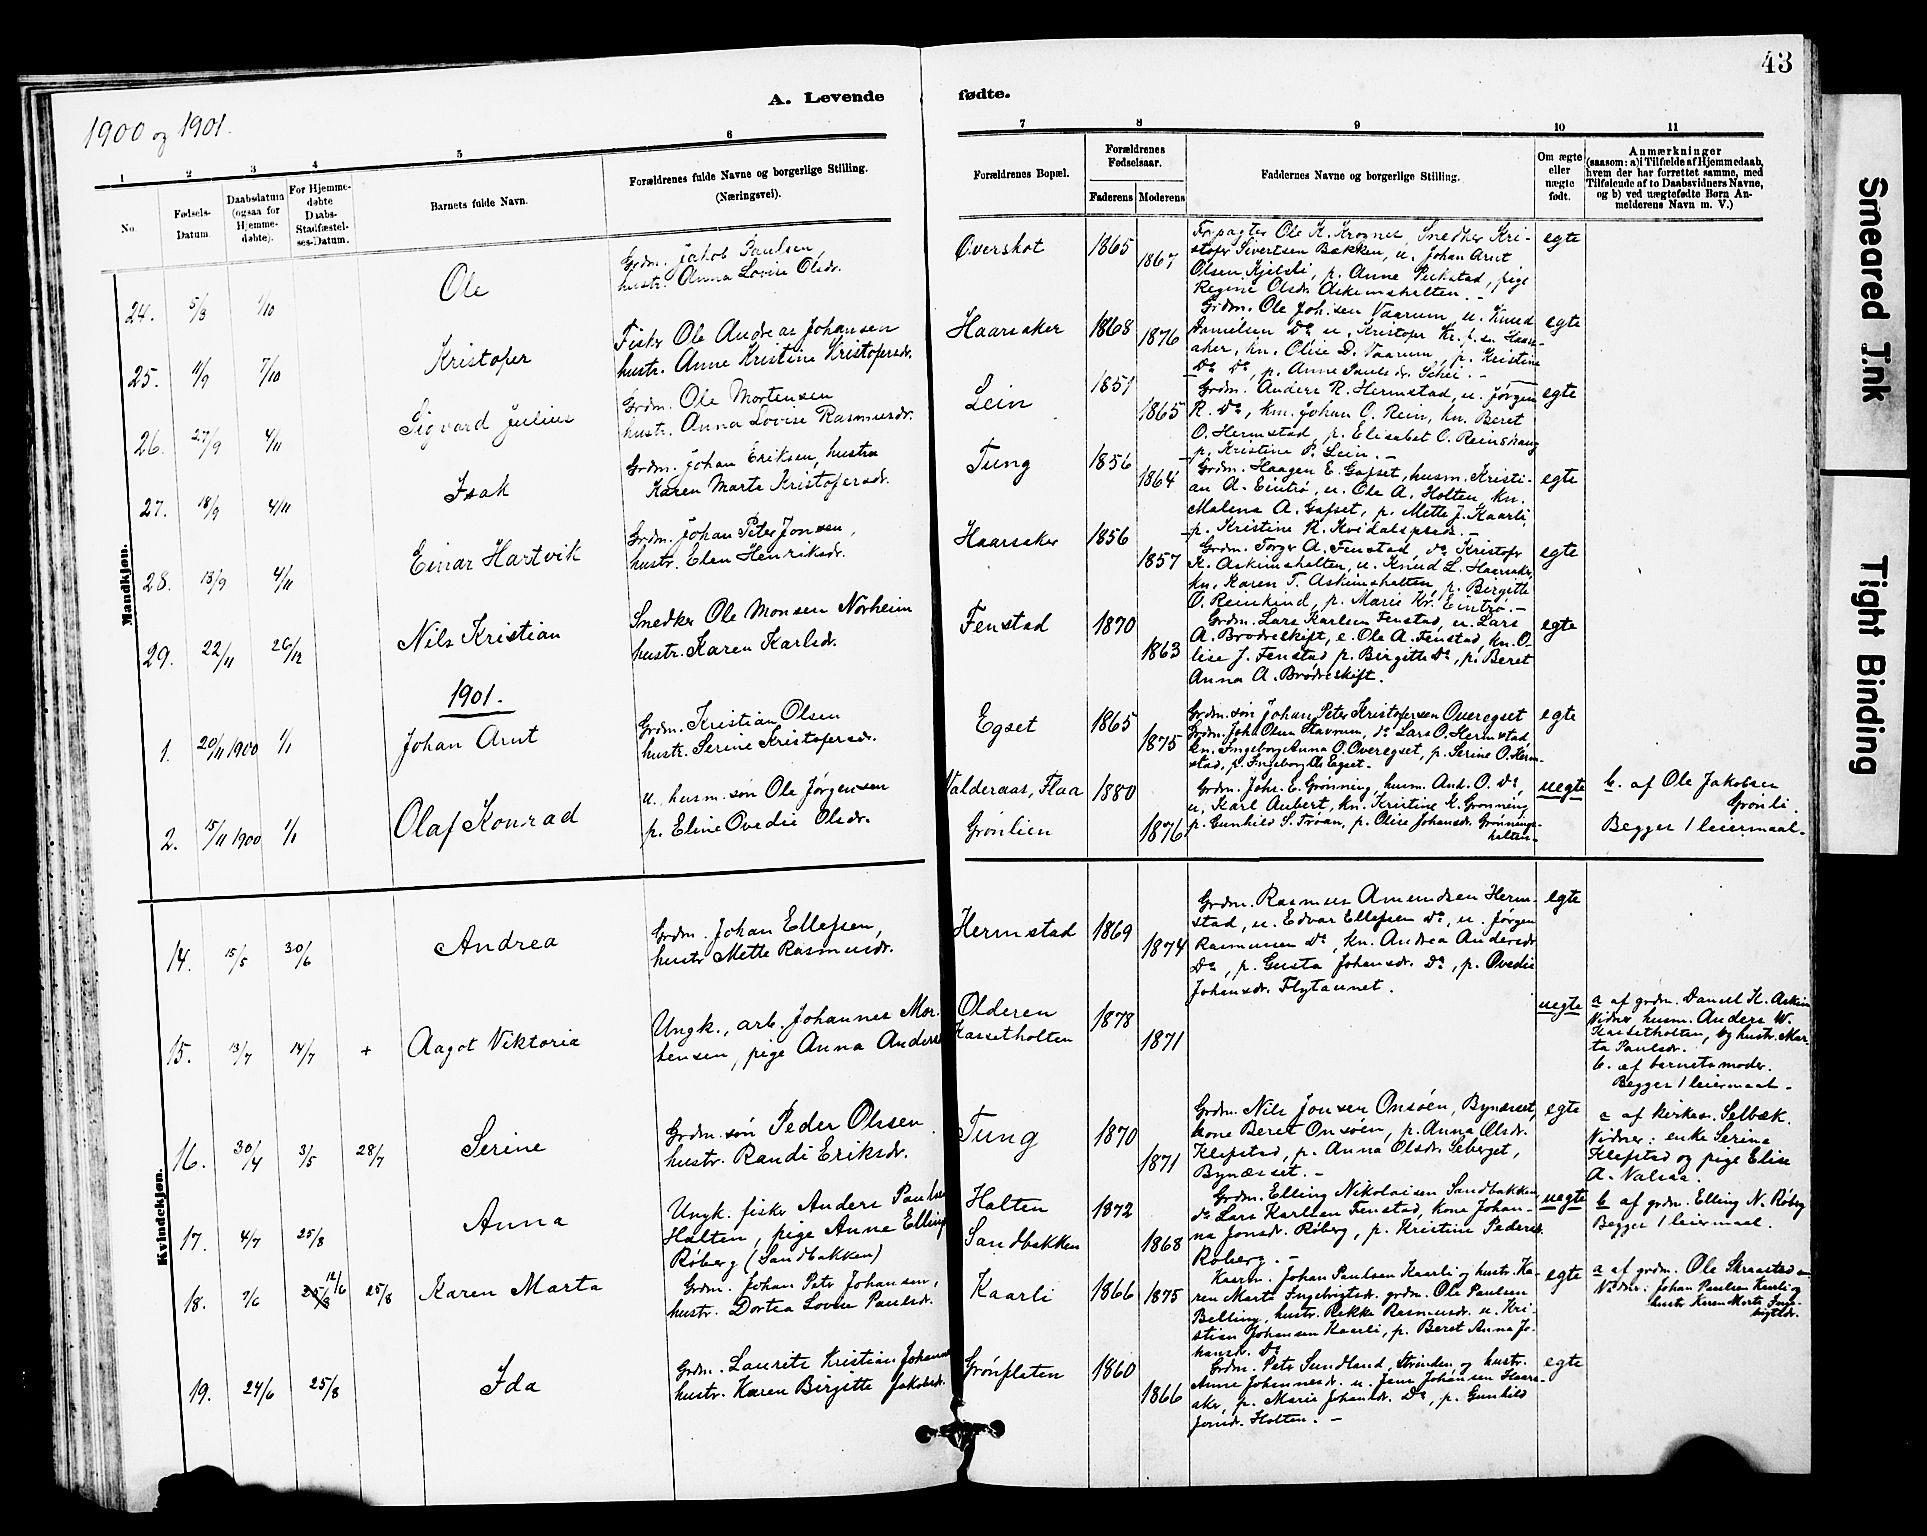 43
A. Levende fødte.
1900 og 1901.
1 2 3 4 5 6 7 8 9 10 11
No.
Fødsels-
Datum.
Daabsdatum
(ogsaa for
Hjemme-
døbte).
For Hjemme-
døbte
Daabs-
Stadfæstel-
ses-Datum.
Barnets fulde Navn.
Forældrenes fulde Navne og borgerlige Stilling.
(Næringsvei).
Forældrenes Bopæl.
Forældrenes
Fødselsaar.
Faderens Moderens
Faddernes Navne og borgerlige Stilling.
Om ægte
eller
uægte
født.
Anmærkninger
(saasom: a) i Tilfælde af Hjemmedaab,
hvem der har forrettet samme, med
Tilføiende af to Daabsvidners Navne,
og b) ved uægtefødte Børn An-
melderens Navn m. V.)
Mandkjøn.
24. 5/8 1/10 Ole
Grdm. Jakob Paulsen,
hustr. Anna Lovise Olsdr.
Overskot 1865 1867
Forpagter Ole K. Krosnes, Snedker Kri-
stofer Sivertsen Bakken, u. Johan Arnt
Olsen Kjelsli, p. Anne , pige
Regine Olsdr. Askimshalten.-
egte
25. 11/9 7/10 Kristofer
Fisker Ole Andreas Johansen
hustr. Anne Kristine Kristofersdr.
Haarsaker 1868 1876
Grdm. Ole Joh.sen Vaarum, u. Knud
Danielsen Do u. Kristofer Kr.f.sen Haars-
aker, kn. Olise D. Vaarum, p. Kristine
Do Do, p. Anne Paulsdr. Schei.-
egte
26. 27/9 4/11 Sigvard Julius
Grdm. Ole Mortensen
hustr. Anna Lovise Rasmusdr.
Lein 1851 1865
Grdm. Anders R. Hermstad, u. Jørgen
R. Do, km. Johan C. Rein, kn. Beret
O. Hermstad, p. Elisabet C. Reinshaug
p. Kristine P. Lein.-
egte
27. 18/9 4/11 Isak
Grdm. Johan Eriksen, hustru
Karen Marta Kristofersdr.
Tung 1856 1864
Grdm. Haagen E. Gafset, husm. Kristi-
an A. Eintrø, u. Ole A. Holten, kn.
Malena A. Gafset, p. Mette J. Kaarli,
p. Kristine R. .-
egte
28. 13/9 4/11 Einar Hartvik
Grdm. Johan Peter Jonsen,
hustr. Elen Henriksdr.
Haarsaker 1856 1857
Grdm. Torger A. Fenstad, do Kristofer
K. Askimshalten, u. Knud L. Haarsaker,
kn. Karen T. Askimshalten, p. Birgitte
O. Reinkind, p. Marie Kr. Eintrø.-
egte
29. 22/11 26/12 Nils Kristian
Snedker Ole Monsen Norheim
hustr. Karen Karlsdr.
Fenstad 1870 1863
Grdm. Lars Karlsen Fenstad, u. Lars
A. Brødreskift, e. Ole A. Fenstad, kn. O-
lise J. Fenstad p. Birgitte Do, p. Beret
Anna A. Brødreskift.
egte
1901.
1. 20/11 1900 1/1 Johan Arnt
Grdm. Kristian Olsen
hustr. Serine Kristofersdr.
Egset 1865 1875
Grdm. søn Johan Peter Kristofersen Overegset
Grdm. Joh. Olsen Stavrum, do Lars O. Hermstad,
kn. Ingeborg Anna O. Overegset, p. Serine O. Herm-
stad, p. Ingeborg A. Egset.-
egte
2. 15/11 1900 1/1 Olaf Konrad
u. husm. søn Ole Jørgensen
p. Eline Ovedie Olsdr.
Valderaas, Flaa 1880
Grønlien 1876
Grdm. Johs. E. Grønning, husm. And. O. Do,
u. Karl Aubert, kn. Kristine K. Grønning
p. Gunhild S. Trøan, p. Olise Johansdr. Grønnings-
halten.-
uegte
b. af Ole Jakobsen
Grønli.
Begges 1 leiermaal.
Kvindekjøn.
14. 15/5 30/6 Andrea
Grdm. Johan Ellefsen,
hustr. Mette Rasmusdr.
Hermstad 1869 1874
Grdm. Rasmus Amundsen Herm-
stad, u. Edvar Ellefsen Do, u. Jørgen
Rasmussen Do, kn. Andrea Andersdr
Do, p. Gusta Johansdr. Do, p. Ovedie
Johansdr. Flytaunet.
egte
15. 13/7 14/7 + Aagot Viktoria
Ungk., arb. Johannes Mor-
tensen, pige Anna Anders
Olderen 1878
Hassetholten 1871
uegte
a af grdm. Daniel K. Askim
Vidner husm. Anders W.
Hassetholten, og hustr. Mar-
ta Paulsdr.
b. af barnets moder.
Begges 1 leiermaal.
16. 30/4 3/5 28/7 Serine
Grdm. søn Peder Olssen
hustr. Randi Eriksdr.
Tung 1870 1871
Grdm. Nils Jonsen Onsøen, Bynæsset,
kone Beret Onsøen, p. Anna Olsdr.
Klefstad, p. Anna Olsdr. Seberget,
Bynæsset.-
egte
a af kirkes. Selbæk.
Vidner: enke Serina
Klefstad og pige Elise
A. Valsaa.
17. 4/7 25/8 Anna
Ungk. fisker Anders Paulsen
Halten, pige Anne Elling
Røberg (Sandbakken)
Halten 1872
Sandbakken 1868
Grdm. Elling Nikolaisen Sandbakken
do Lars Karlsen Fenstad, kone Johan-
na Jonsdr. Røberg, p. Kristine Pedersd.
Røberg.-
uegte
b af grdm. Elling N. Røberg
Begges 1 leiermaal.
18. 7/6 25/8 12/6 25/8 Karen Marta
Grdm. Johan Peter Johansen,
hustr. Dortea Lovise Paulsdr.
Kaarli 1866 1875
Kaarm. Johan Paulsen Kaarli og hustr. Ka-
ren Marta Ingebrigtsdr. grdm. Ole Paulsen
Belling, hustr. Rikke Rasmusdr. u. Kri-
stian Johansen Kaarli, p. Beret Anna Jo-
hansdr. Do
egte
a af grdm. Ole Skraastad
Vidner: Johan Paulsen Kaarli og
hustr. Karen Marta Inge-
brigtsdr.
19. 24/6 25/8 Ida
Grdm. Laurits Kristian Johansen
hustr. Karen Birgitte Jakobsdr.
Grønflaten 1860 1866
Grdm. Peter Sundland, Strinden og hustr.
Anne Johannesdr. u. Jens Johansen Haars-
aker, p. Marie Johansdr. Do, p. Gunhild
Jonsdr. Holten.-
egte
Smeared Ink
Tight Binding